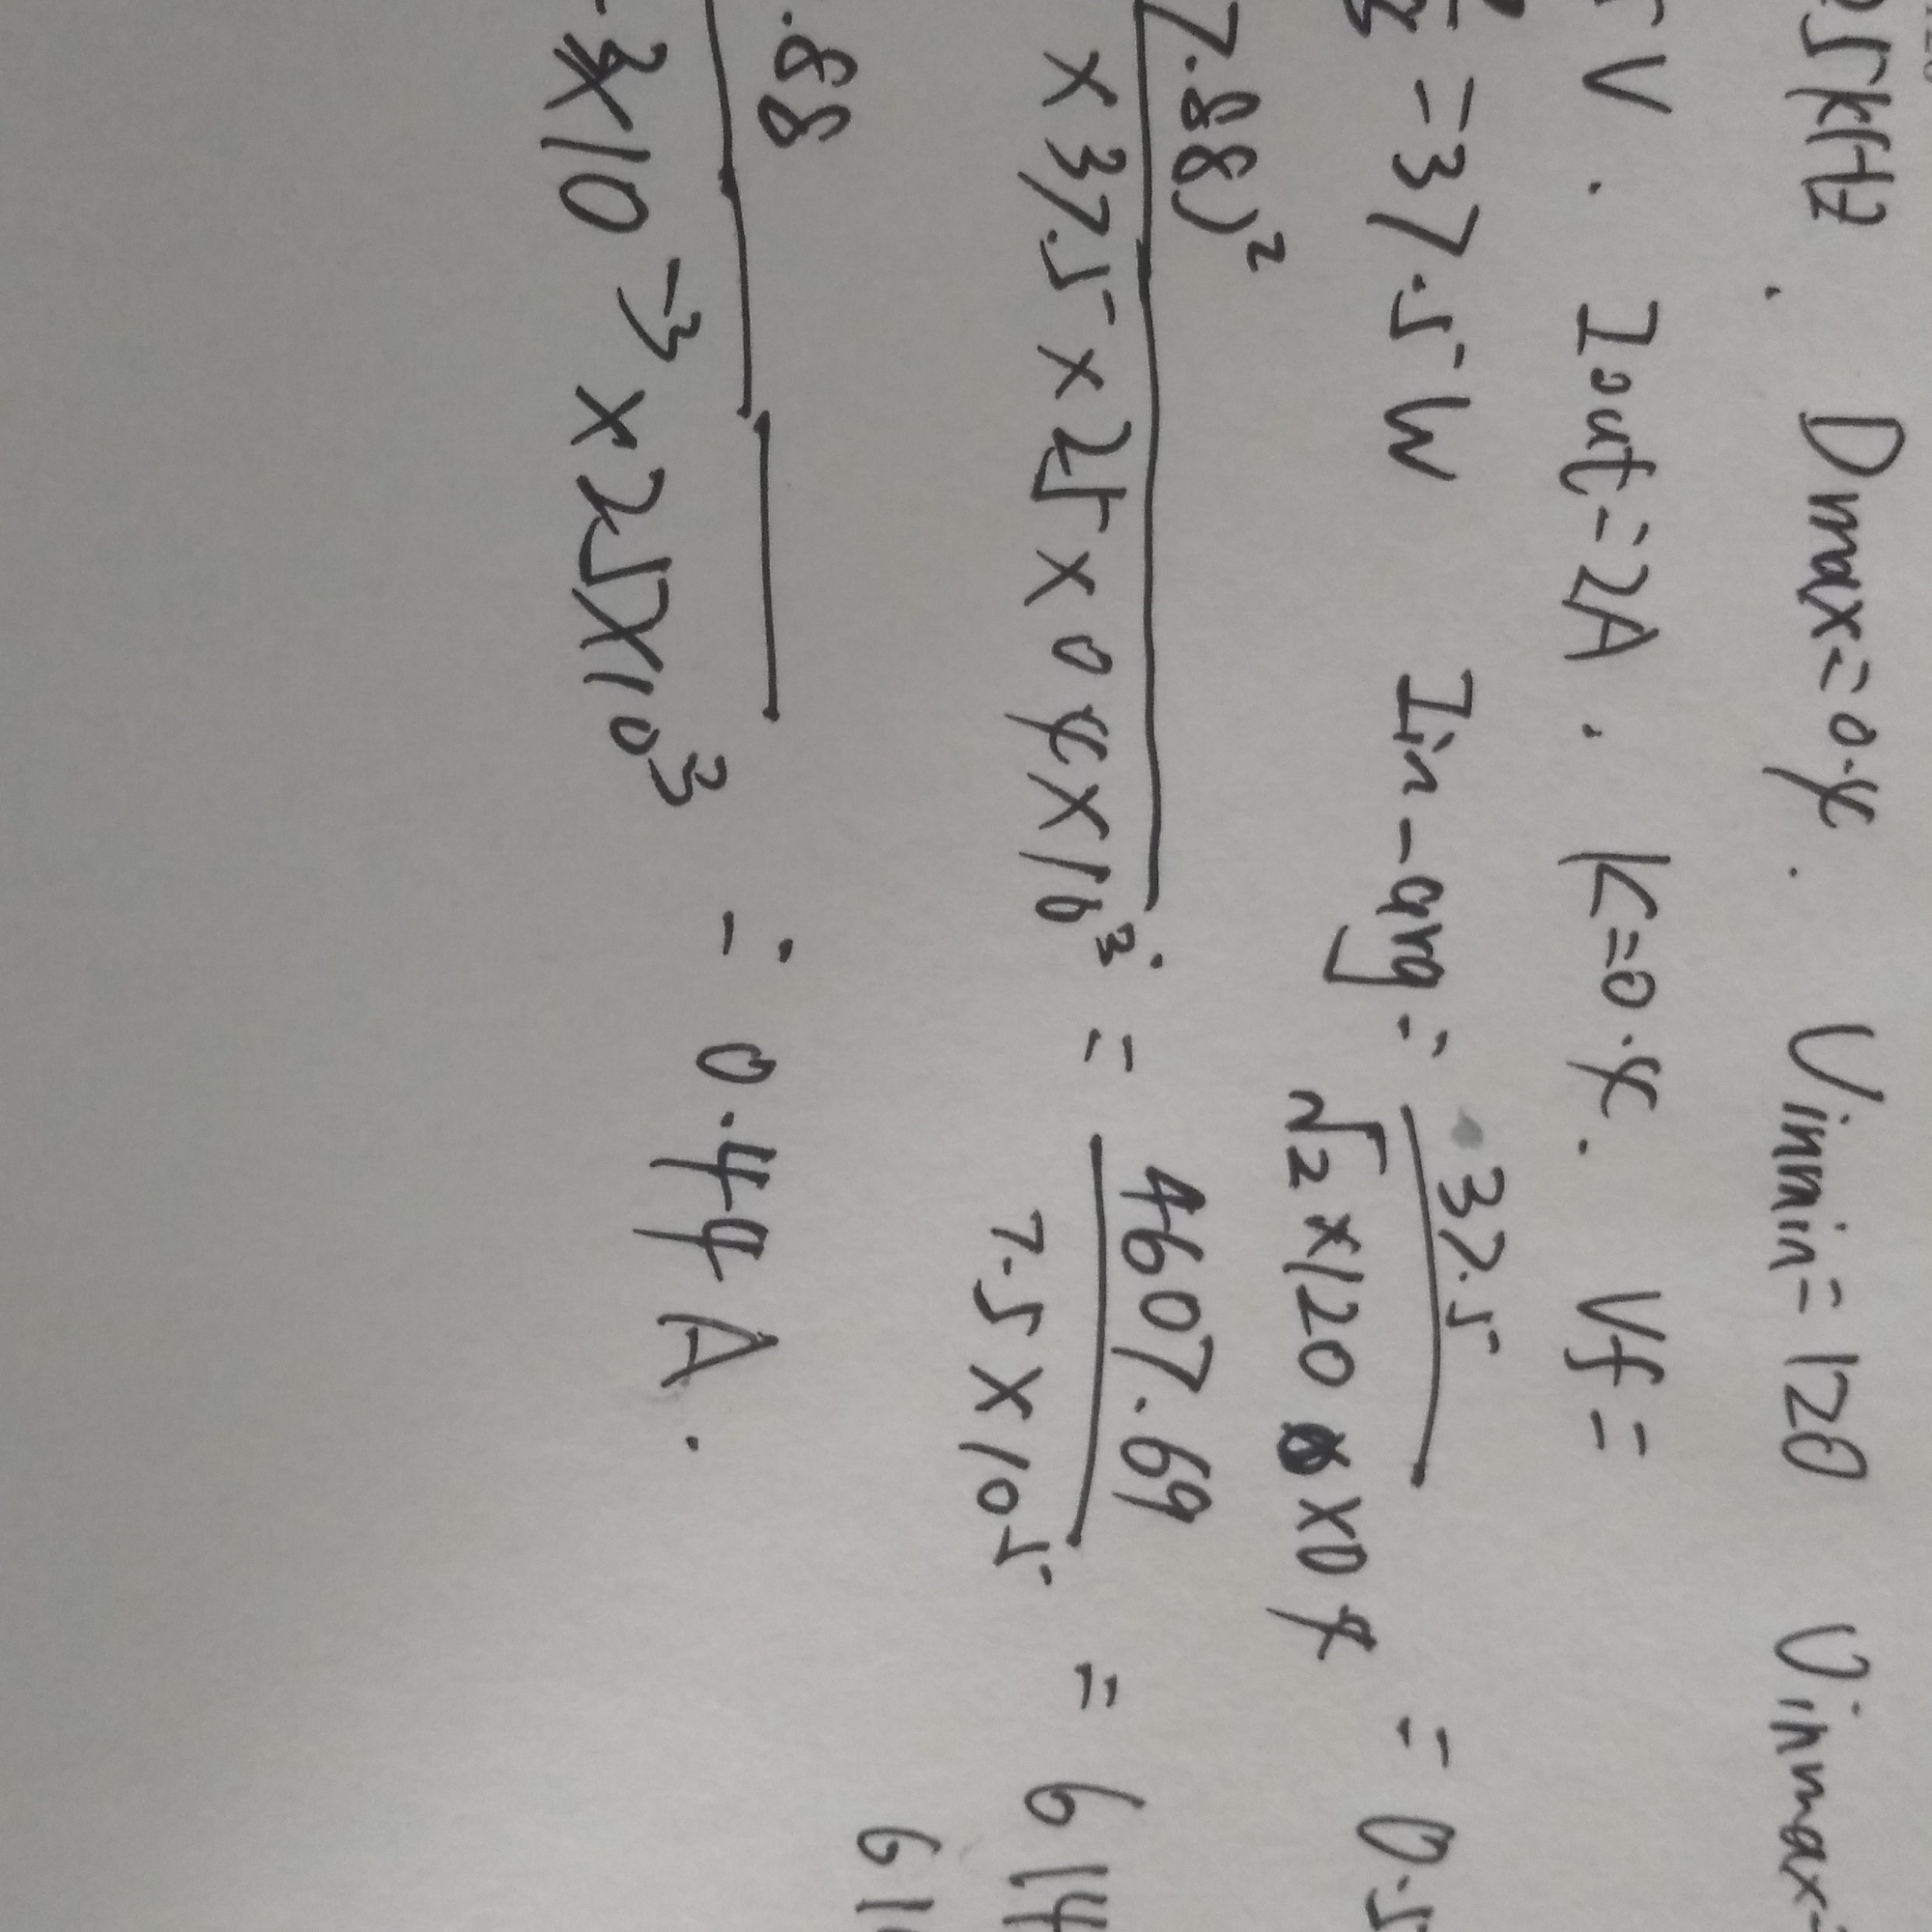 5kHz. Dmax=0.4. Vinmin=120 Vinmax=
5V. Iout=2A. K=0.4. Vf=
=37.5W Iin-avg= 37.5 / √2×120×0.4 = 0.5
7.88)² / ×37.5×25×0.4×10³ = 4607.69 / 7.5×10⁵ = 614
61
.88 / ×10⁻³×25×10³ = 0.44A.